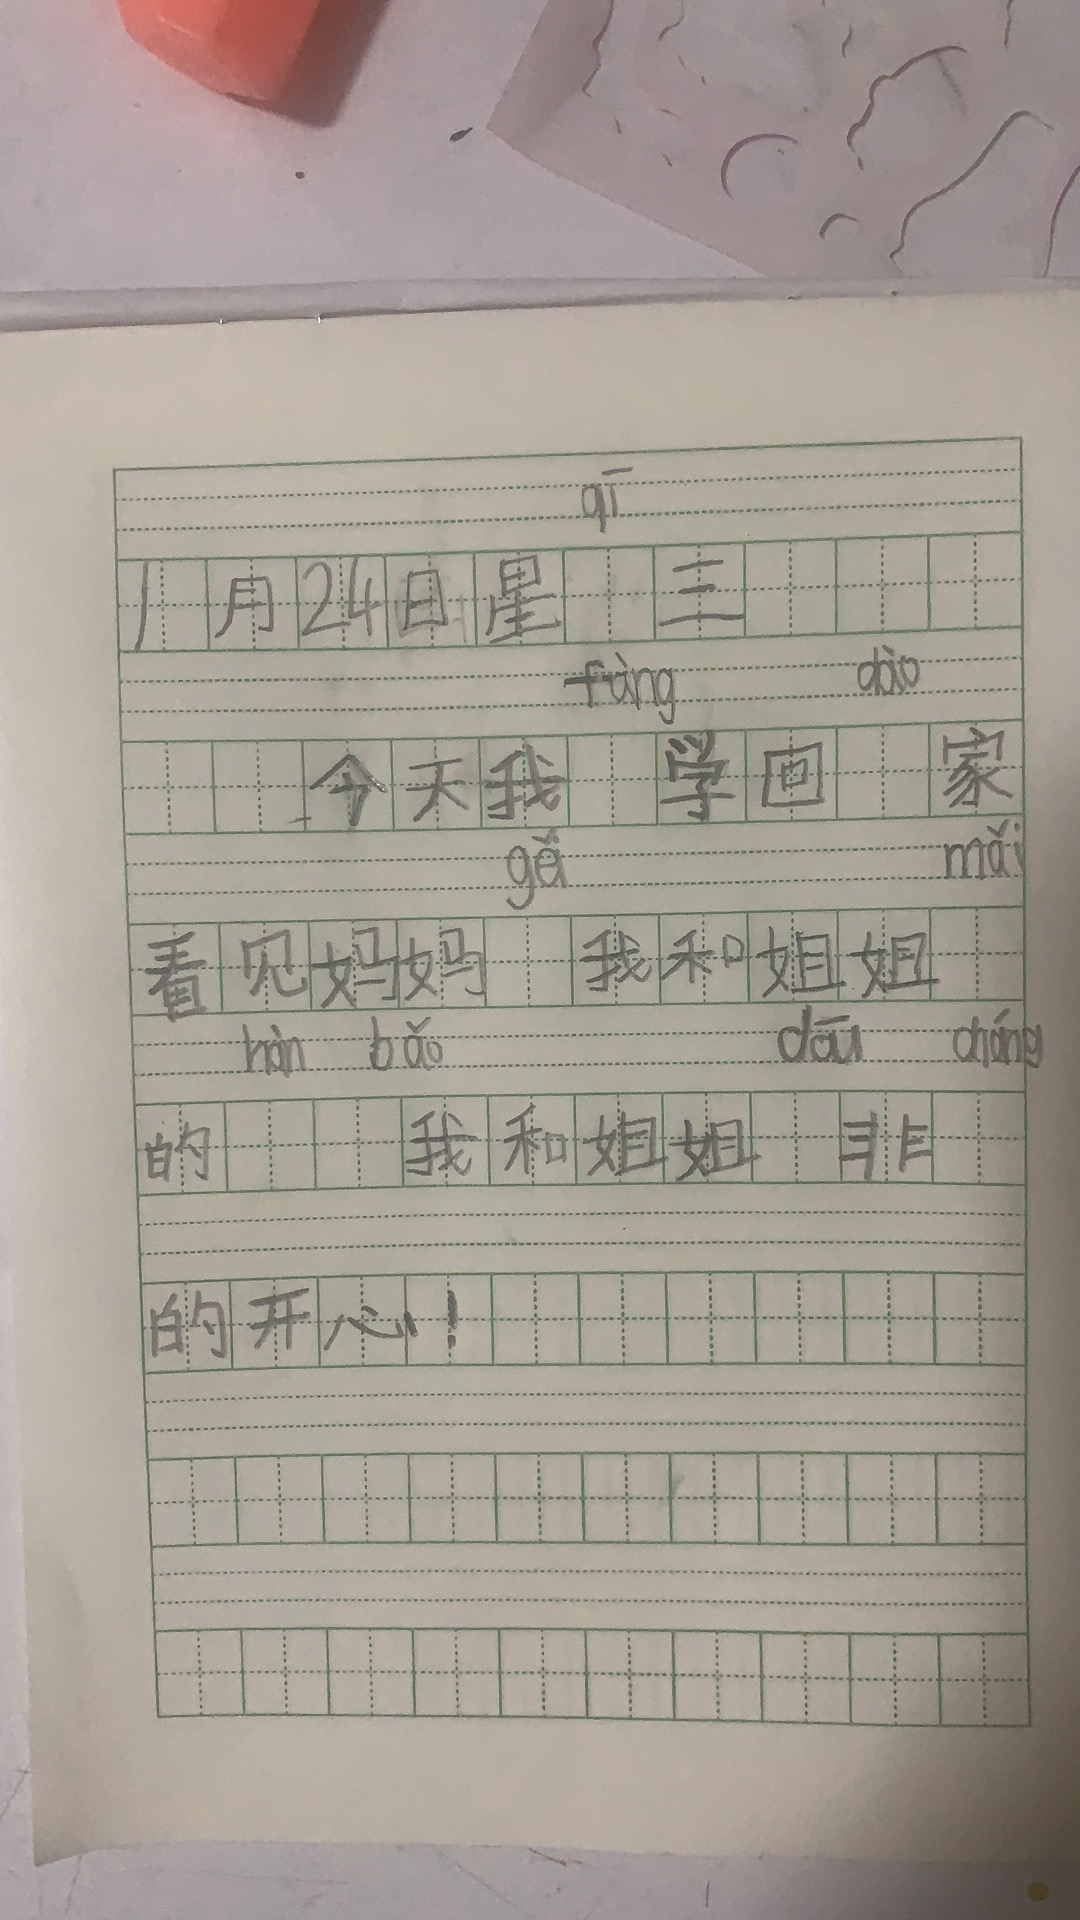 qī
1月24日星 三
fàng dào
今天我 学回 家
gěi mǎi
看见妈妈 我和姐姐
hàn bǎo dōu cháng
的 我和姐姐 非
的开心!